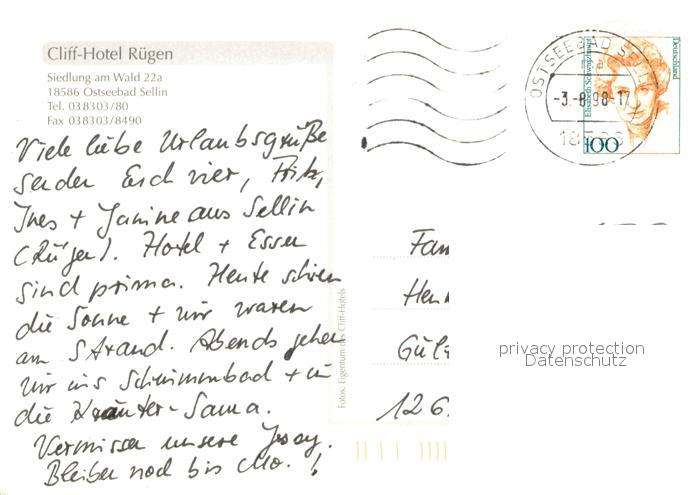 Cliff-Hotel Rügen
Siedlung am Wald 22a
18586 Ostseebad Sellin
Tel. 038303/80
Fax 038303/8490
Viele liebe Urlaubsgrüße
senden Euch vier, Fritz,
Ines + Janine aus Sellin
(Rügen). Hotel + Essen
sind prima. Heute schien
die Sonne + wir waren
am Strand. Abends gehen
wir ins Schwimmbad + in
die Kräuter-Sauna.
Vermissen unsere
Bleiben noch bis Mo. !
Fotos: Eigentum des Cliff-Hotels
OSTSEEBAD SE
-3.-8.98-17
Elisabeth Schwarzhaupt
Deutschland
100
Fam
Gül
126
privacy protection
Datenschutz